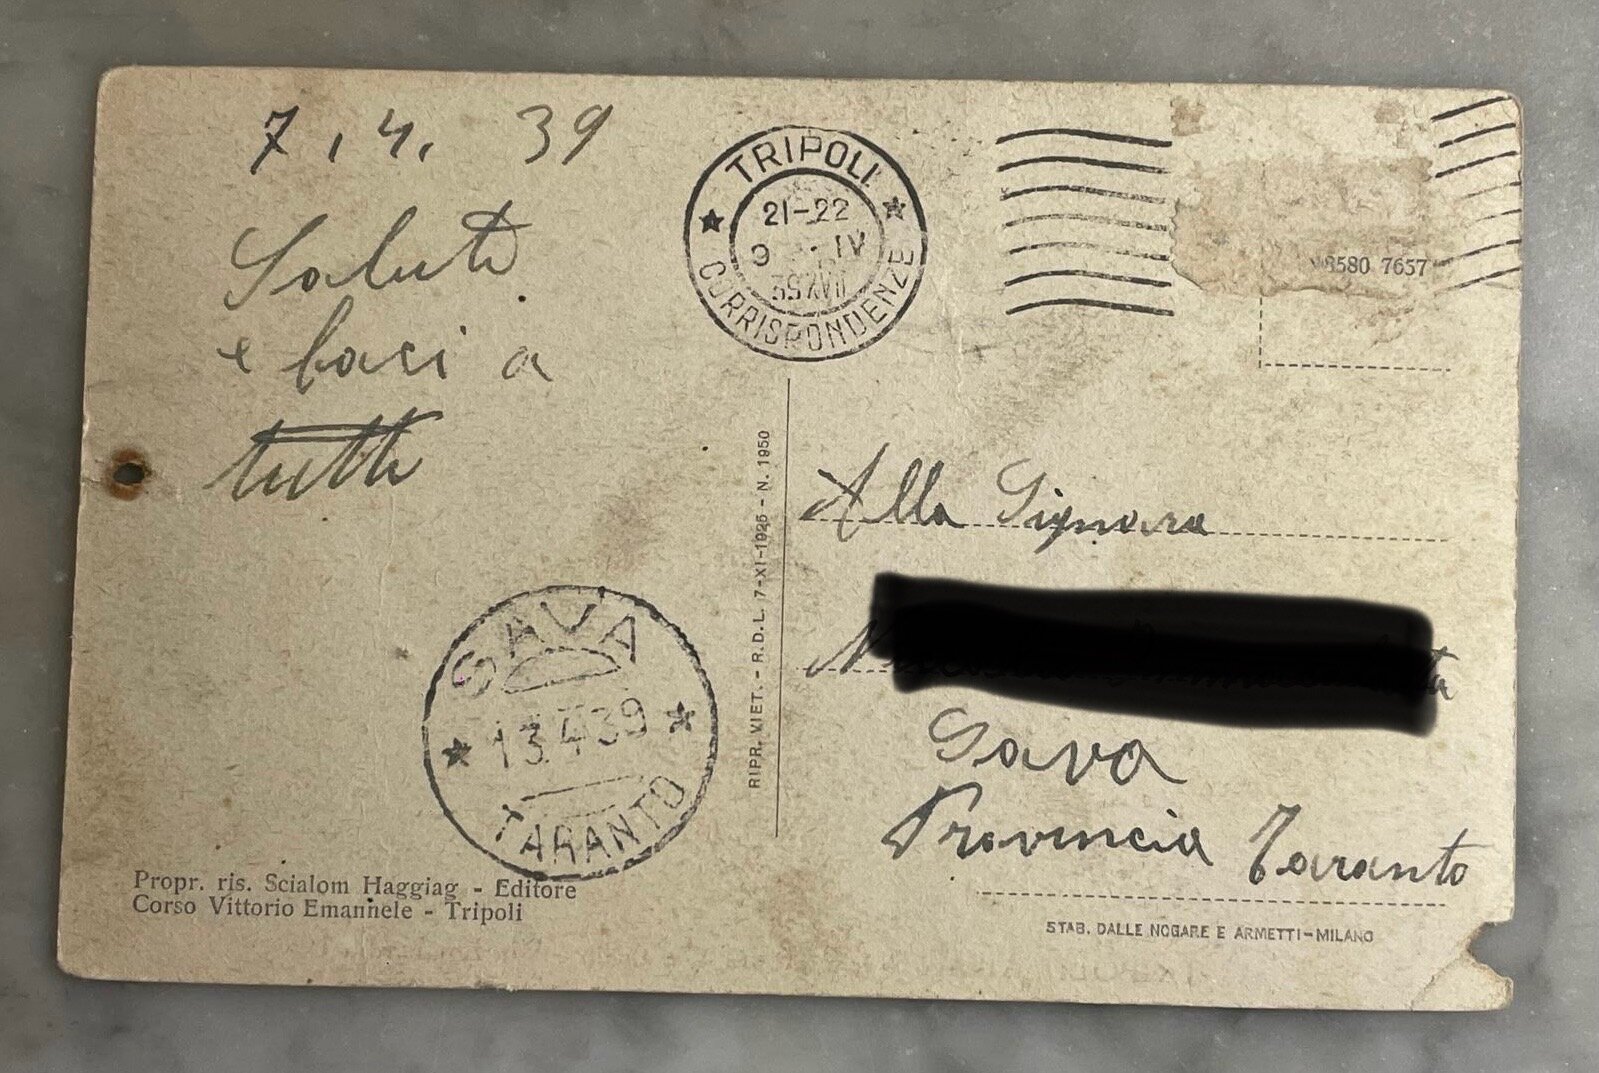 7.4. 39
Saluti
e baci a
tutti
TRIPOLI
21-22
9 IV
39XVII
CORRISPONDENZE
8580 7657
RIPR. VIET. - R.D.L. 7-XI-1925 - N. 1950
Alla Signora
Sava
Provincia Taranto
SAVA
13.4.39
TARANTO
Propr. ris. Scialom Haggiag - Editore
Corso Vittorio Emannele - Tripoli
STAB. DALLE NOGARE E ARMETTI-MILANO